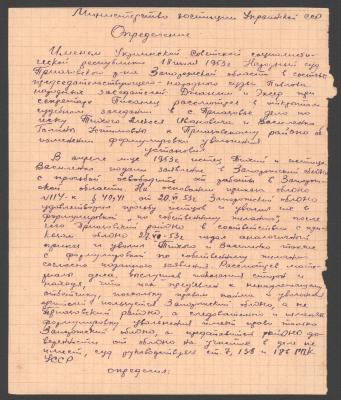 Министерство юстиции Украинской ССР
Определение
Именем Украинской Советской социалисти-
ческой республики 18 1953г. Народный суд
Приазовского р-на Запорожской области в составе
председательствующего народного судьи Павлова
народных заседателей и при
секретаре рассмотрев в открытом
судебном заседании в с. Приазовье дело по
иску Тихого Алексея Ивановича и Василенко
к Приазовскому районо об
изменении формулировки увольнения
установил
В апреле м-це 1953г истец Тихий и истица
Василенко подали заявления в Запорожский облоно
с просьбой освободить от работы в Запорож-
ской области. На основании приказа облоно
№114-к § 40,41 от 20. 53г Запорожский облоно
удовлетворил просьбу истцов и уволил их с
формулировкой "по собственному желанию", после
чего Приазовский районо в соответствии с при-
казом облоно 27. 53г издал аналогичный
приказ и уволил Тихого и Василенко также
с формулировкой по собственному желанию
согласно поданного заявления. Рассмотрев мате-
риалы дела, выслушав показания сторон и
находя, что иск предъявлен к ненадлежащему
ответчику, поскольку правом найма и увольнения
пользуется Запорожский облоно, а не
Приазовский районо, а следовательно и изменять
формулировку увольнения имеет право только
Запорожский облоно, а представитель районо до-
веренности от облоно на участие в деле не
имеет, суд руководствуясь ст. 7, и 186 ГПК
УССР
определил: